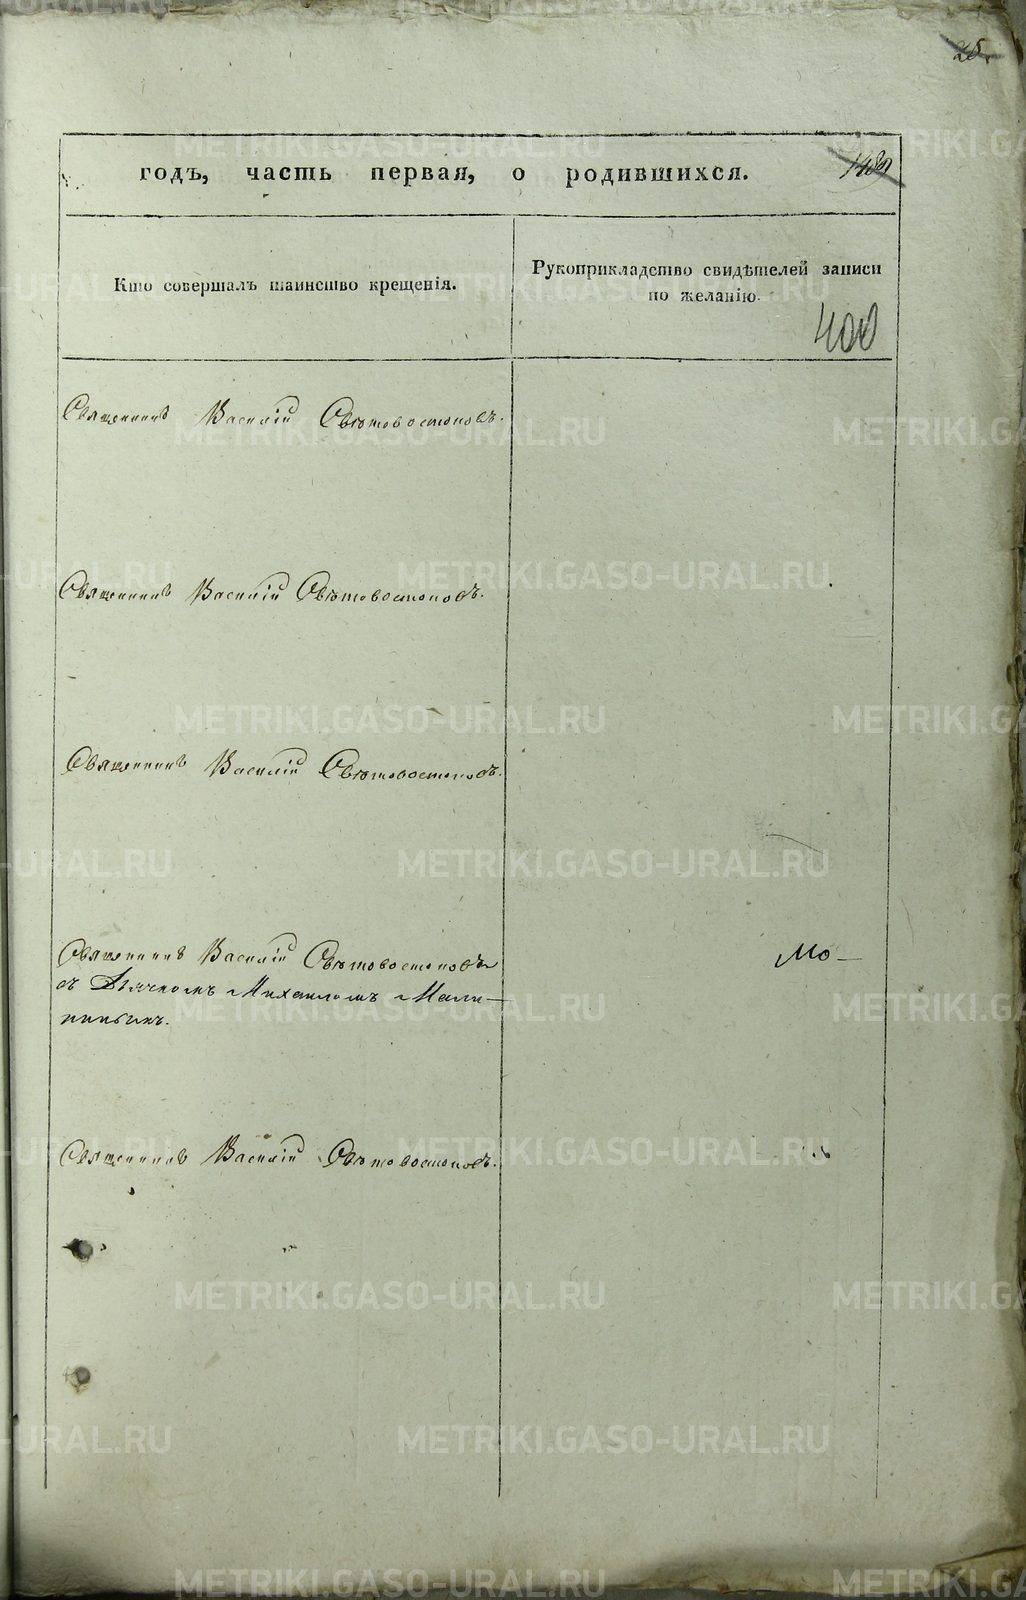 25.
годъ, часть первая, о родившихся.
Кто совершалъ таинство крещенія.
Рукоприкладство свидѣтелей записи
по желанію.
400
Священникъ Василій Свѣтовостоковъ.
Священникъ Василій Свѣтовостоковъ.
Священникъ Василій Свѣтовостоковъ.
Священникъ Василій Свѣтовостоковъ
съ Дьячкомъ Михаиломъ
Мо-
Священникъ Василій Свѣтовостоковъ.
METRIKI.GASO-URAL.RU